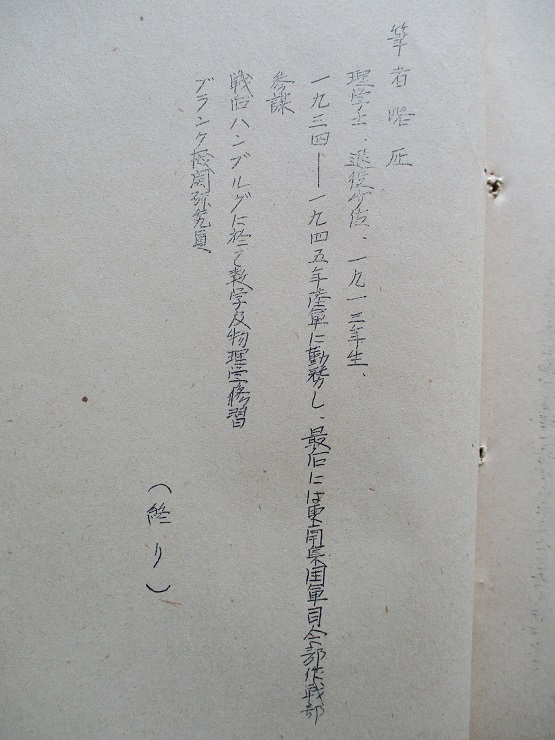 筆者略歴
理学士、退役少佐、一九一三年生、
一九三四―一九四五年陸軍に勤務し、最后には東部集団軍司令部作戦部
参謀
戦后ハンブルグに於て数学及物理学修習
ブランク機関研究員、
(終り)